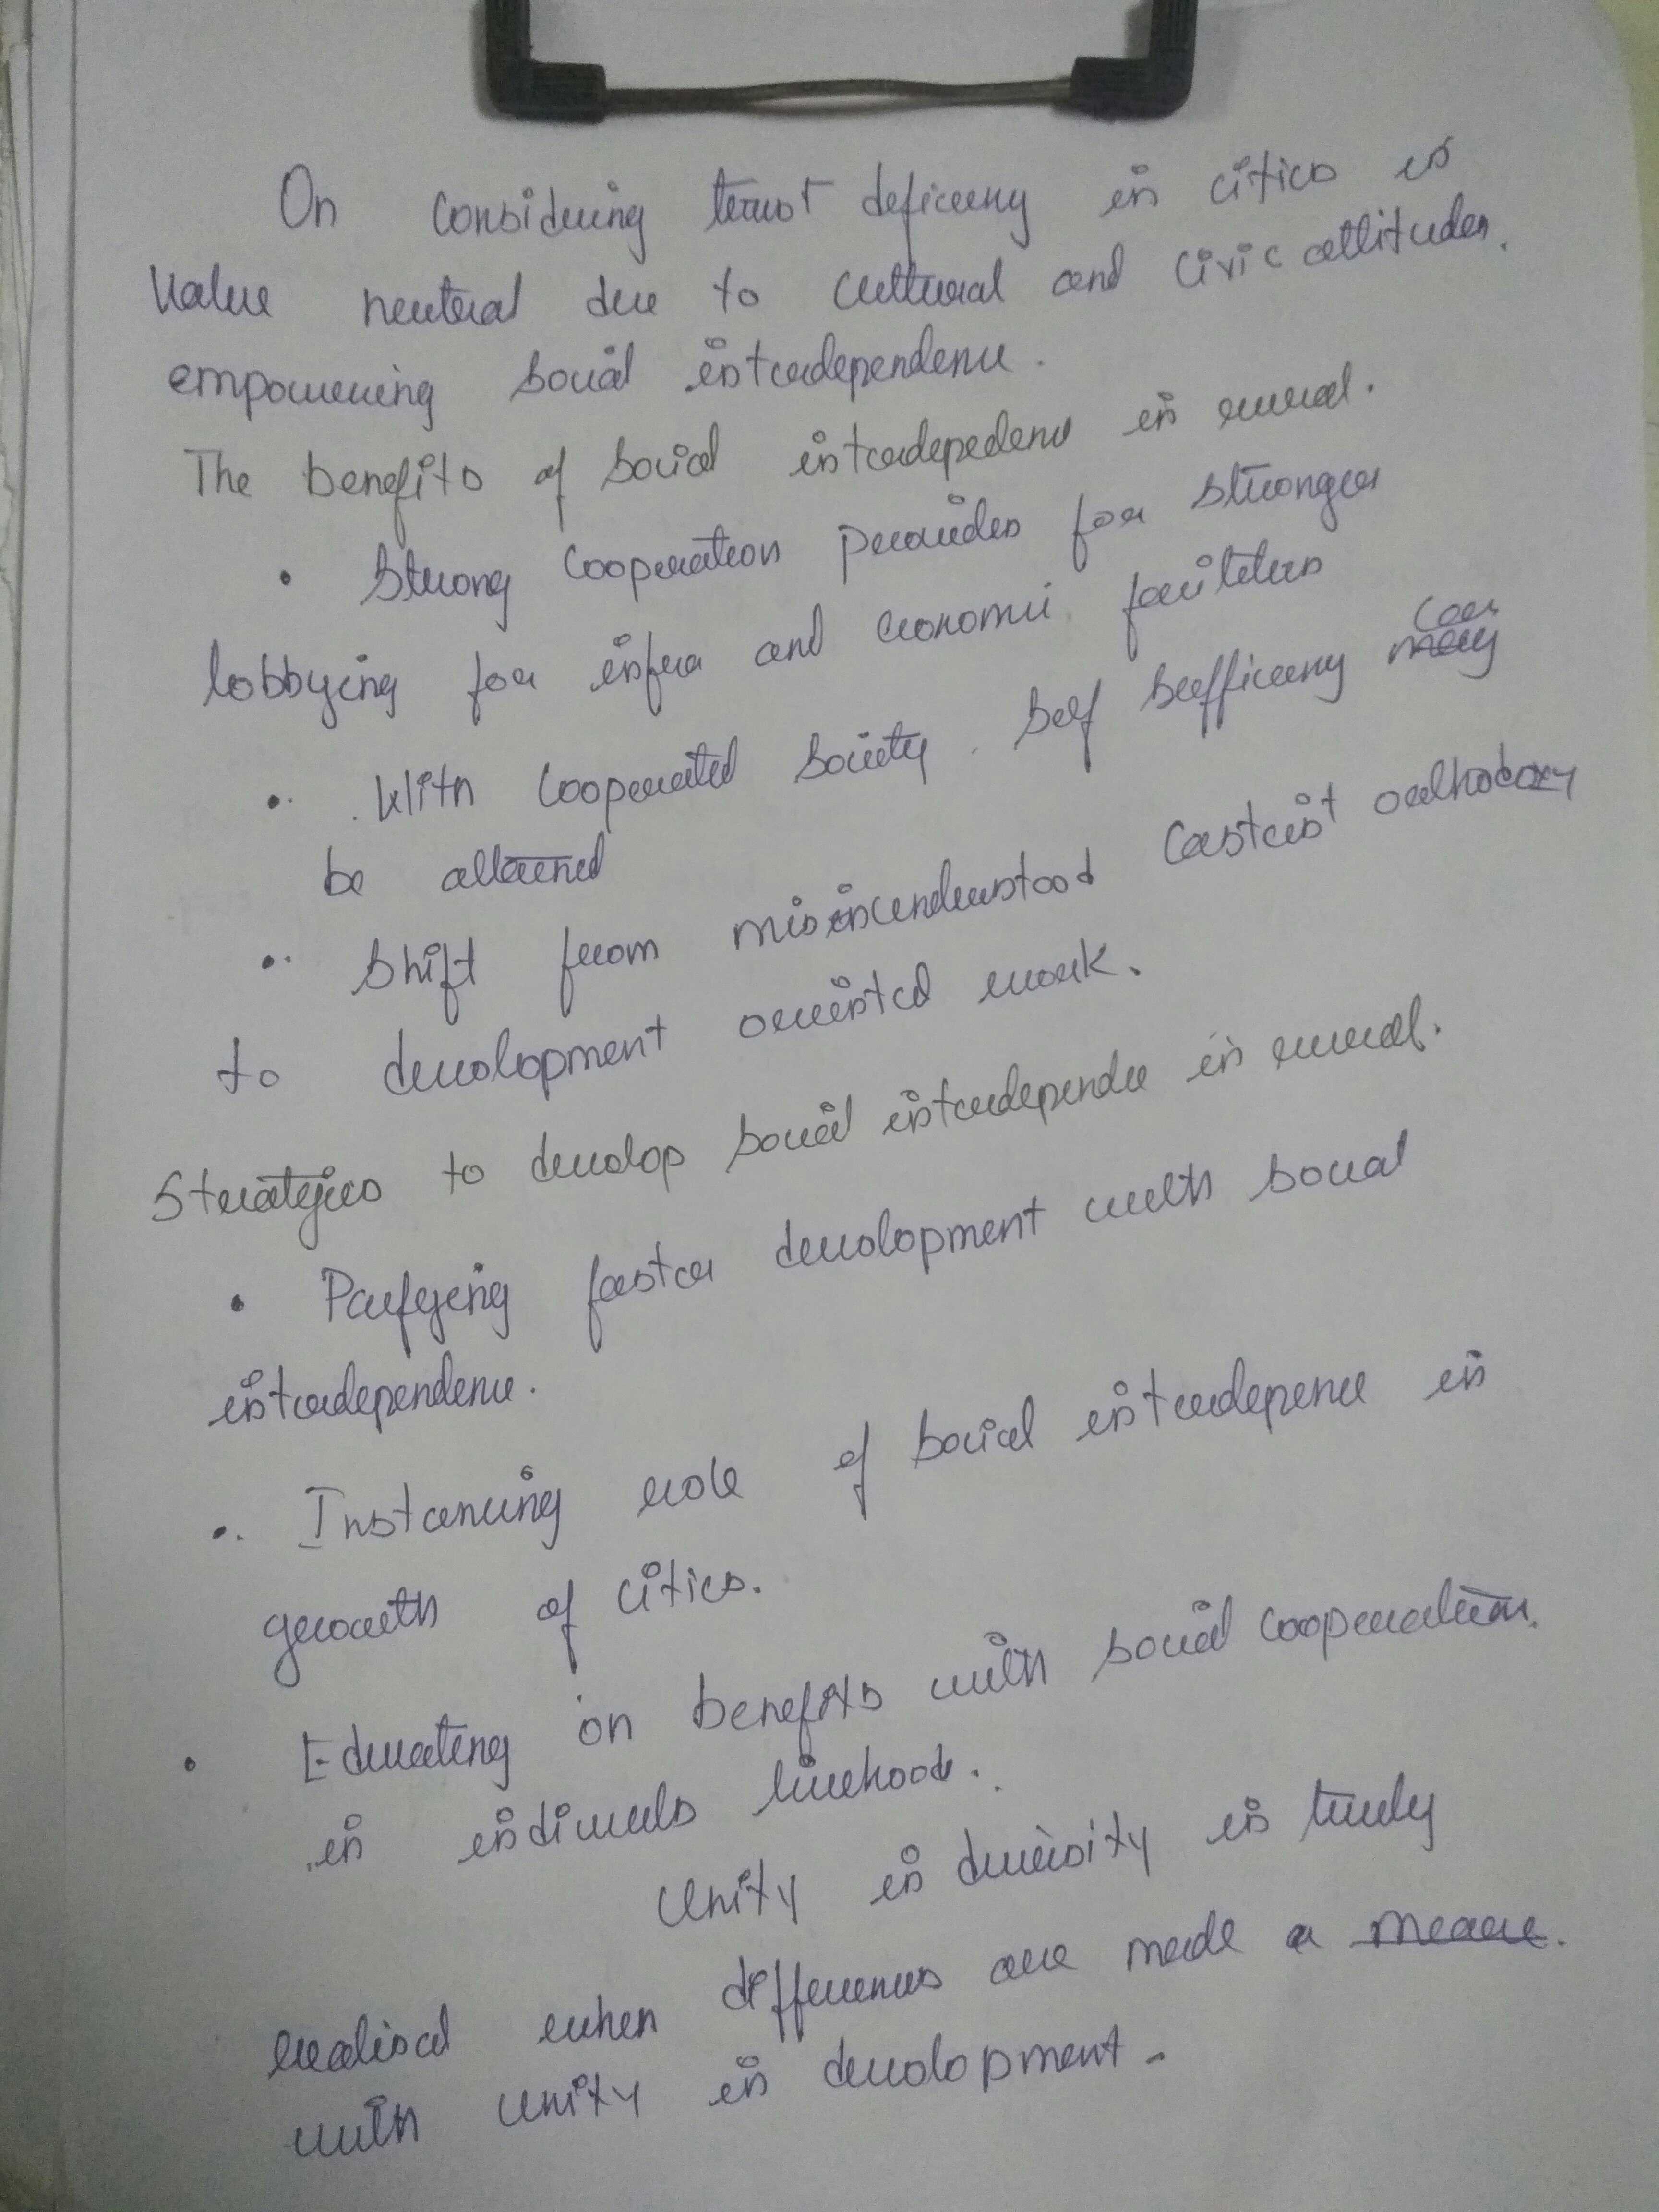 On considering trust deficeny in cities is
value neutral due to cultural and civic attitudes.
empowering social interdependence.
The benefits of social interdepedence in rural.
• Strong cooperation provides for stronger
lobbying for infra and economic facilities
• With cooperated society. Self sufficieny can
be attained
• Shift from misunderstood casteist orthodoxy
to development oriented work.
Strategies to develop social interdependce in rural.
• faster development with social
interdependence.
• Instancing role of social interdepence in
growth of cities.
• Educating on benefits with social cooperation.
in livehoods.
Unity in diversity is truly
realised when differences are made a
with unity in development.